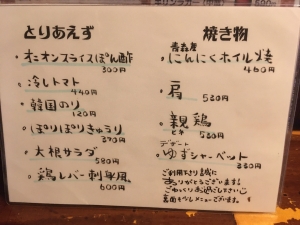 とりあえず
・オニオンスライスぽん酢
300円
・冷しトマト
440円
・韓国のり
120円
・ぽりぽりきゅうり
370円
・大根サラダ
580円
・鶏レバー刺身風
600円
焼き物
青森産
・にんにくホイル焼
460円
・肩 530円
・親鶏
ピネ 530円
デザート
・ゆずシャーベット
330円
ご利用下さり誠に
ありがとうございます!
ごゆっくりお過ごし下さい
裏面もメニューございます。